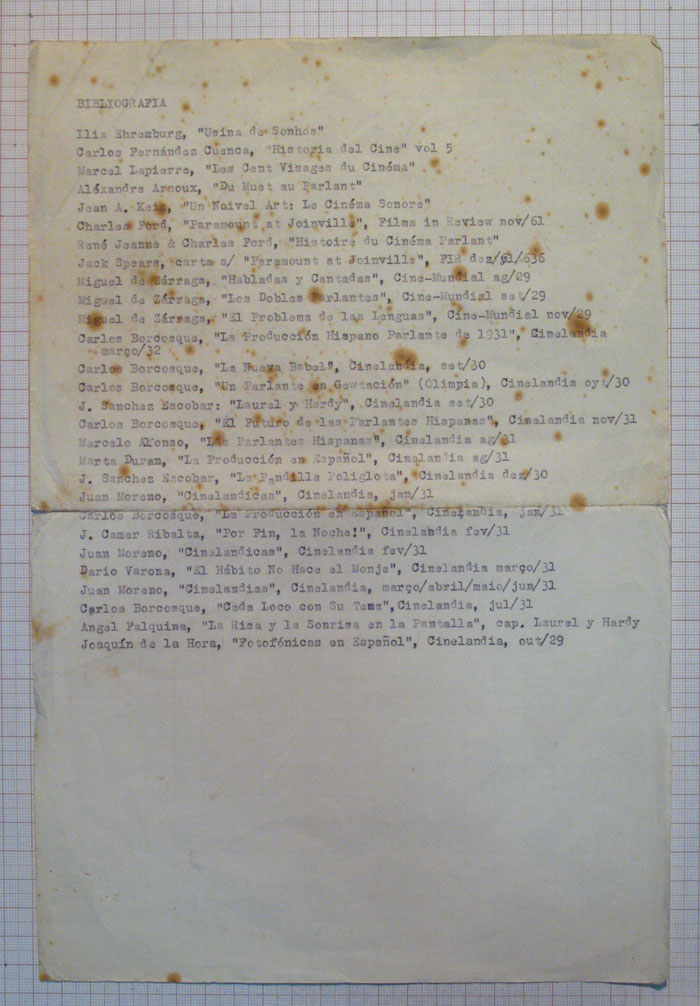 BIBLIOGRAFIA
Ilia Ehremburg, "Usina de Sonhos"
Carlos Fernández Cuenca, "Historia del Cine" vol 5
Marcel Lapierre, "Les Cent Visages du Cinéma"
Aléxandre Arnoux, "Du Muet au Parlant"
Jean A. Keim, "Un Noivel Art: Le Cinéma Sonore"
Charles Ford, "Paramount at Joinville", Films in Review nov/61
René Jeanne & Charles Ford, "Histoire du Cinéma Parlant"
Jack Spears, carta s/ "Paramount at Joinville", FIR
Miguel de Zárraga, "Habladas y Cantadas", Cine-Mundial ag/29
Miguel de Zárraga, "Los Dobles Parlantes", Cine-Mundial set/29
Miguel de Zárraga, "El Problema de las Lenguas", Cine-Mundial nov/29
Carlos Borcosque, "La Producción Hispano Parlante de 1931", Cinelandia
março/32
Carlos Borcosque, "La Nueva Babel", Cinelandia, set/30
Carlos Borcosque, "Un Parlante en Gewtación" (Olimpia), Cinelandia oyt/30
J. Sanchez Escobar: "Laurel y Hardy", Cinelandia set/30
Carlos Borcosque, "El Futuro de las Parlantes Hispanas", Cinelandia nov/31
Marcelo Alfonso, "Las Parlantes Hispanas", Cinelandia ag/31
Marta Duran, "La Producción en Español", Cinelandia ag/31
J. Sanchez Escobar, "La Pandilla Poliglota", Cinelandia dez/30
Juan Moreno, "Cinelandicas", Cinelandia, jan/31
Carlos Borcosque, "La Producción en Español", Cinelandia, jan/31
J. Camer Ribalta, "Por Fin, la Noche!", Cinelandia fev/31
Juan Moreno, "Cinelandicas", Cinelandia fev/31
Dario Varona, "El Hábito No Hace el Monje", Cinelandia março/31
Juan Moreno, "Cinelandias", Cinelandia, março/abril/maio/jun/31
Carlos Borcosque, "Cada Loco con Su Tema",Cinelandia, jul/31
Angel Falquina, "La Risa y la Sonrisa en la Pantalla", cap. Laurel y Hardy
Joaquín de la Hora, "Fotofónicas en Español", Cinelandia, out/29